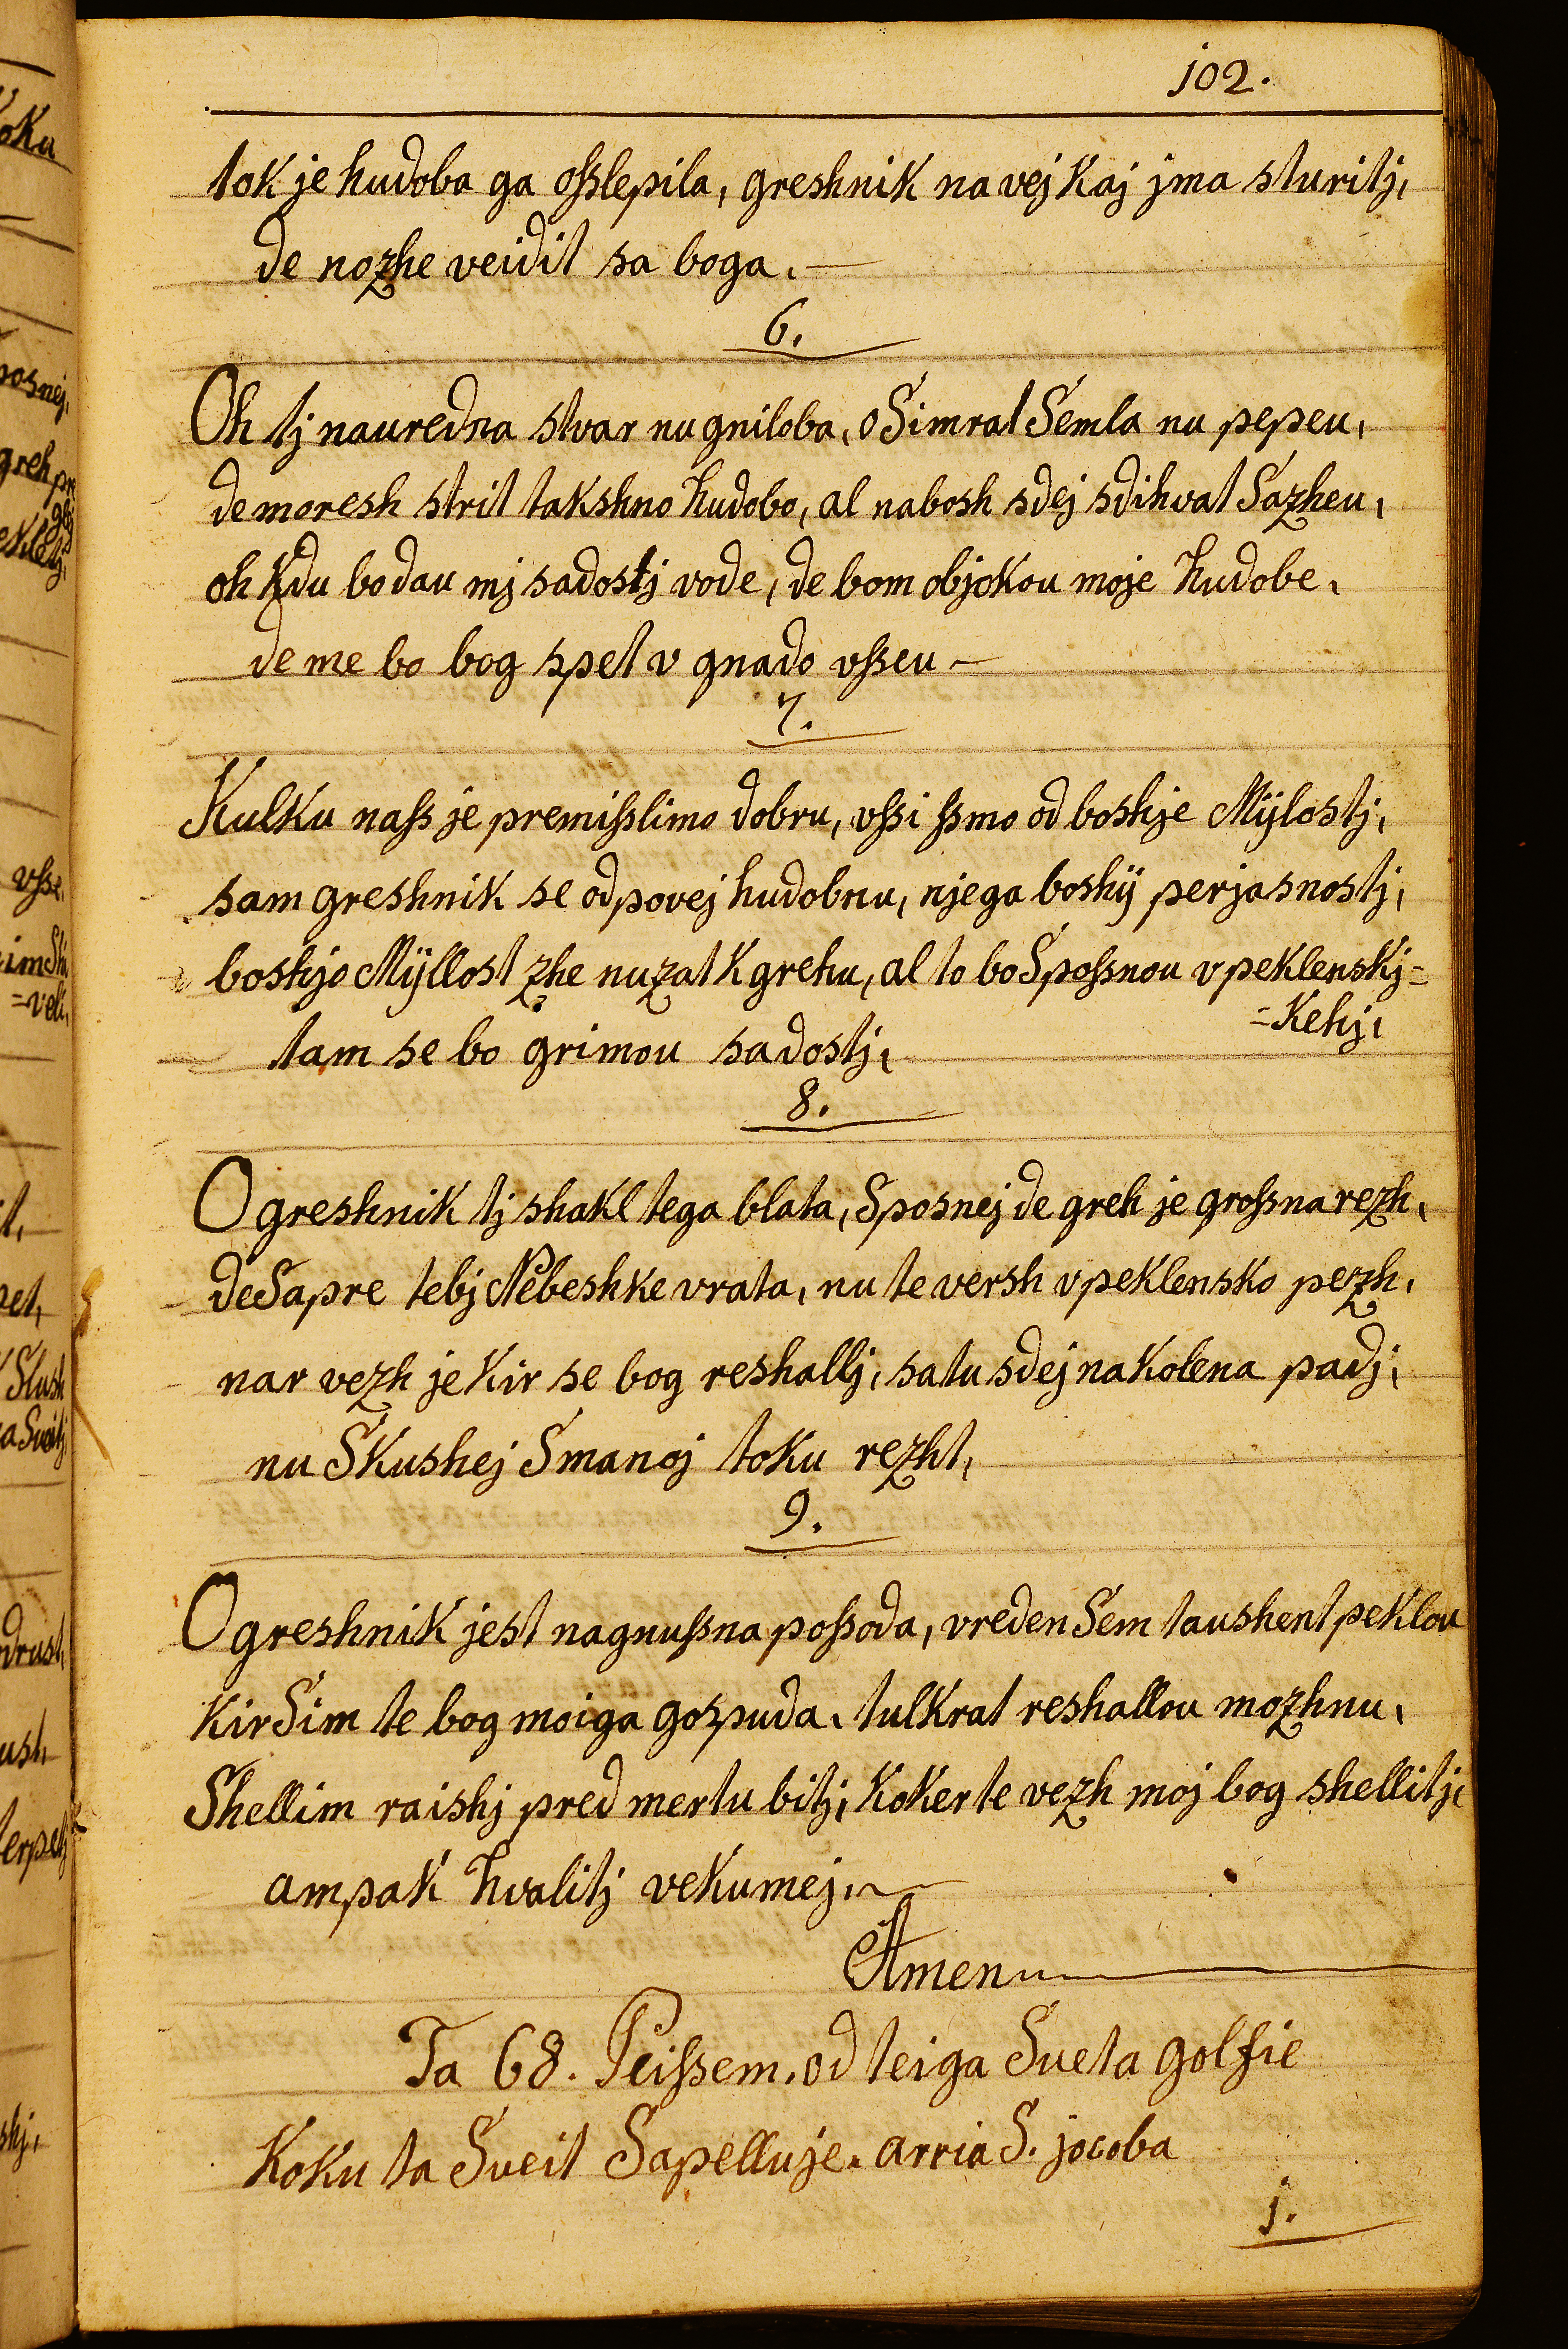 102.
tok je hudoba ga oſslepila, greshnik na vej kaj jma sturitj,
de nozhe veidit sa boga.
6.
Oh tj nauredna stvar nu gniloba, o Simrat Semla nu pepeu,
de moresh strit takshno hudobo, al nabosh sdej sdihvat Sazheu,
oh kdu bo dau mj sadostj vode, de bom objokou moje hudobe.
de me bo bog spet v gnado vſseu
7.
Kulku naſs je premiſslimo dobru, vſsi ſsmo od boshje Mÿlostj,
sam greshnik se odpovej hudobnu, njega boshÿ perjasnostj,
boshjo Mÿllost zhe nuzat k grehu, al to bo Spoſsnou v peklenskj=
=Kehj,
tam se bo grimou sadostj,
8.
O greshnik tj shakl tega blata, Sposnej de greh je groſsna rezh,
de Sapre tebj Nebeshke vrata, nu te versh v peklensko pezh,
nar vezh je kir se bog reshallj, satu sdej na kolena padj,
nu Skushej Smanoj toku rezht,
9.
O greshnik jest nagnuſsna poſsoda, vreden Sem taushent peklou
kir Sim te bog moiga gospuda, tulkrat reshallou mozhnu,
Shellim raishj pred mertu bitj, koker te vezh moj bog shellitj,
ampak hvalitj vekumej,
Amen
Ta 68. Peiſsem. od teiga Sueta golfie
Koku ta Sueit Sapelluje. arria S. jocoba
j.